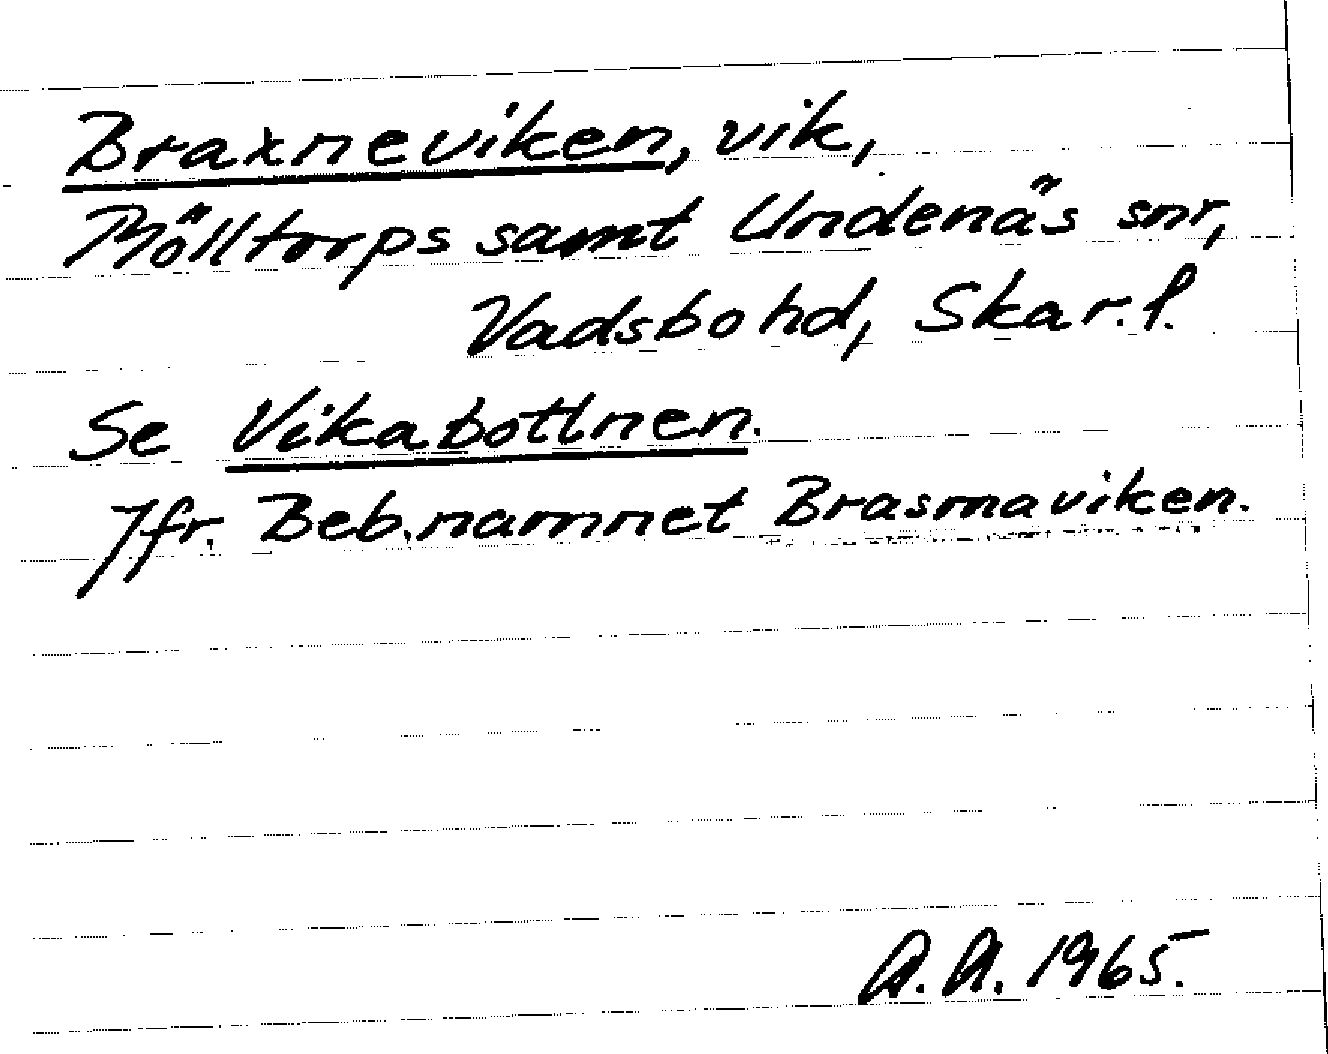 Braxneviken, vik,
Mölltorps samt Undenäs snr,
Vadsbo hd, Skar. l.
Se Vikabottnen.
Jfr. Beb.namnet Brasmaviken.
A.A. 1965.